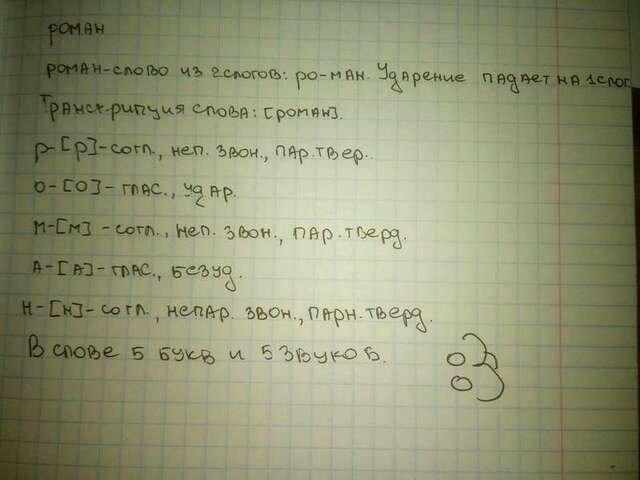 роман
роман-слово из 2слогов: ро-ман. Ударение падает на 1слог.
Транскрипция слова: [роман].
р-[р]-согл., неп. звон., пар.твер..
о-[о]-глас., удар.
м-[м]-согл., неп. звон., пар.тверд.
а-[а]-глас., безуд.
н-[н]-согл., непар. звон., парн.тверд.
В слове 5 букв и 5 звуков.